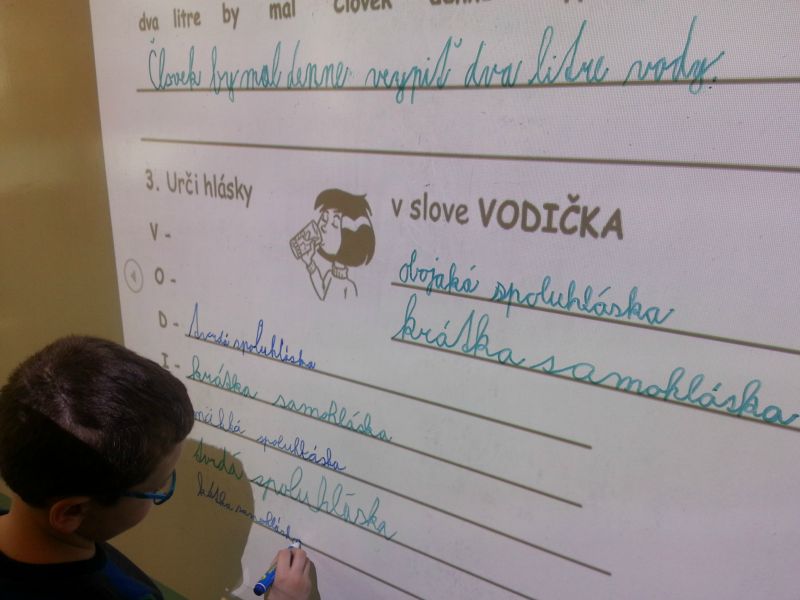 dva litre by mal človek
Človek by mal denne vypiť dva litre vody.
3. Urči hlásky v slove VODIČKA
V - obojaká spoluhláska
O - krátka samohláska
D - tvrdá spoluhláska
I - krátka samohláska
mäkká spoluhláska
tvrdá spoluhláska
krátka samohláska